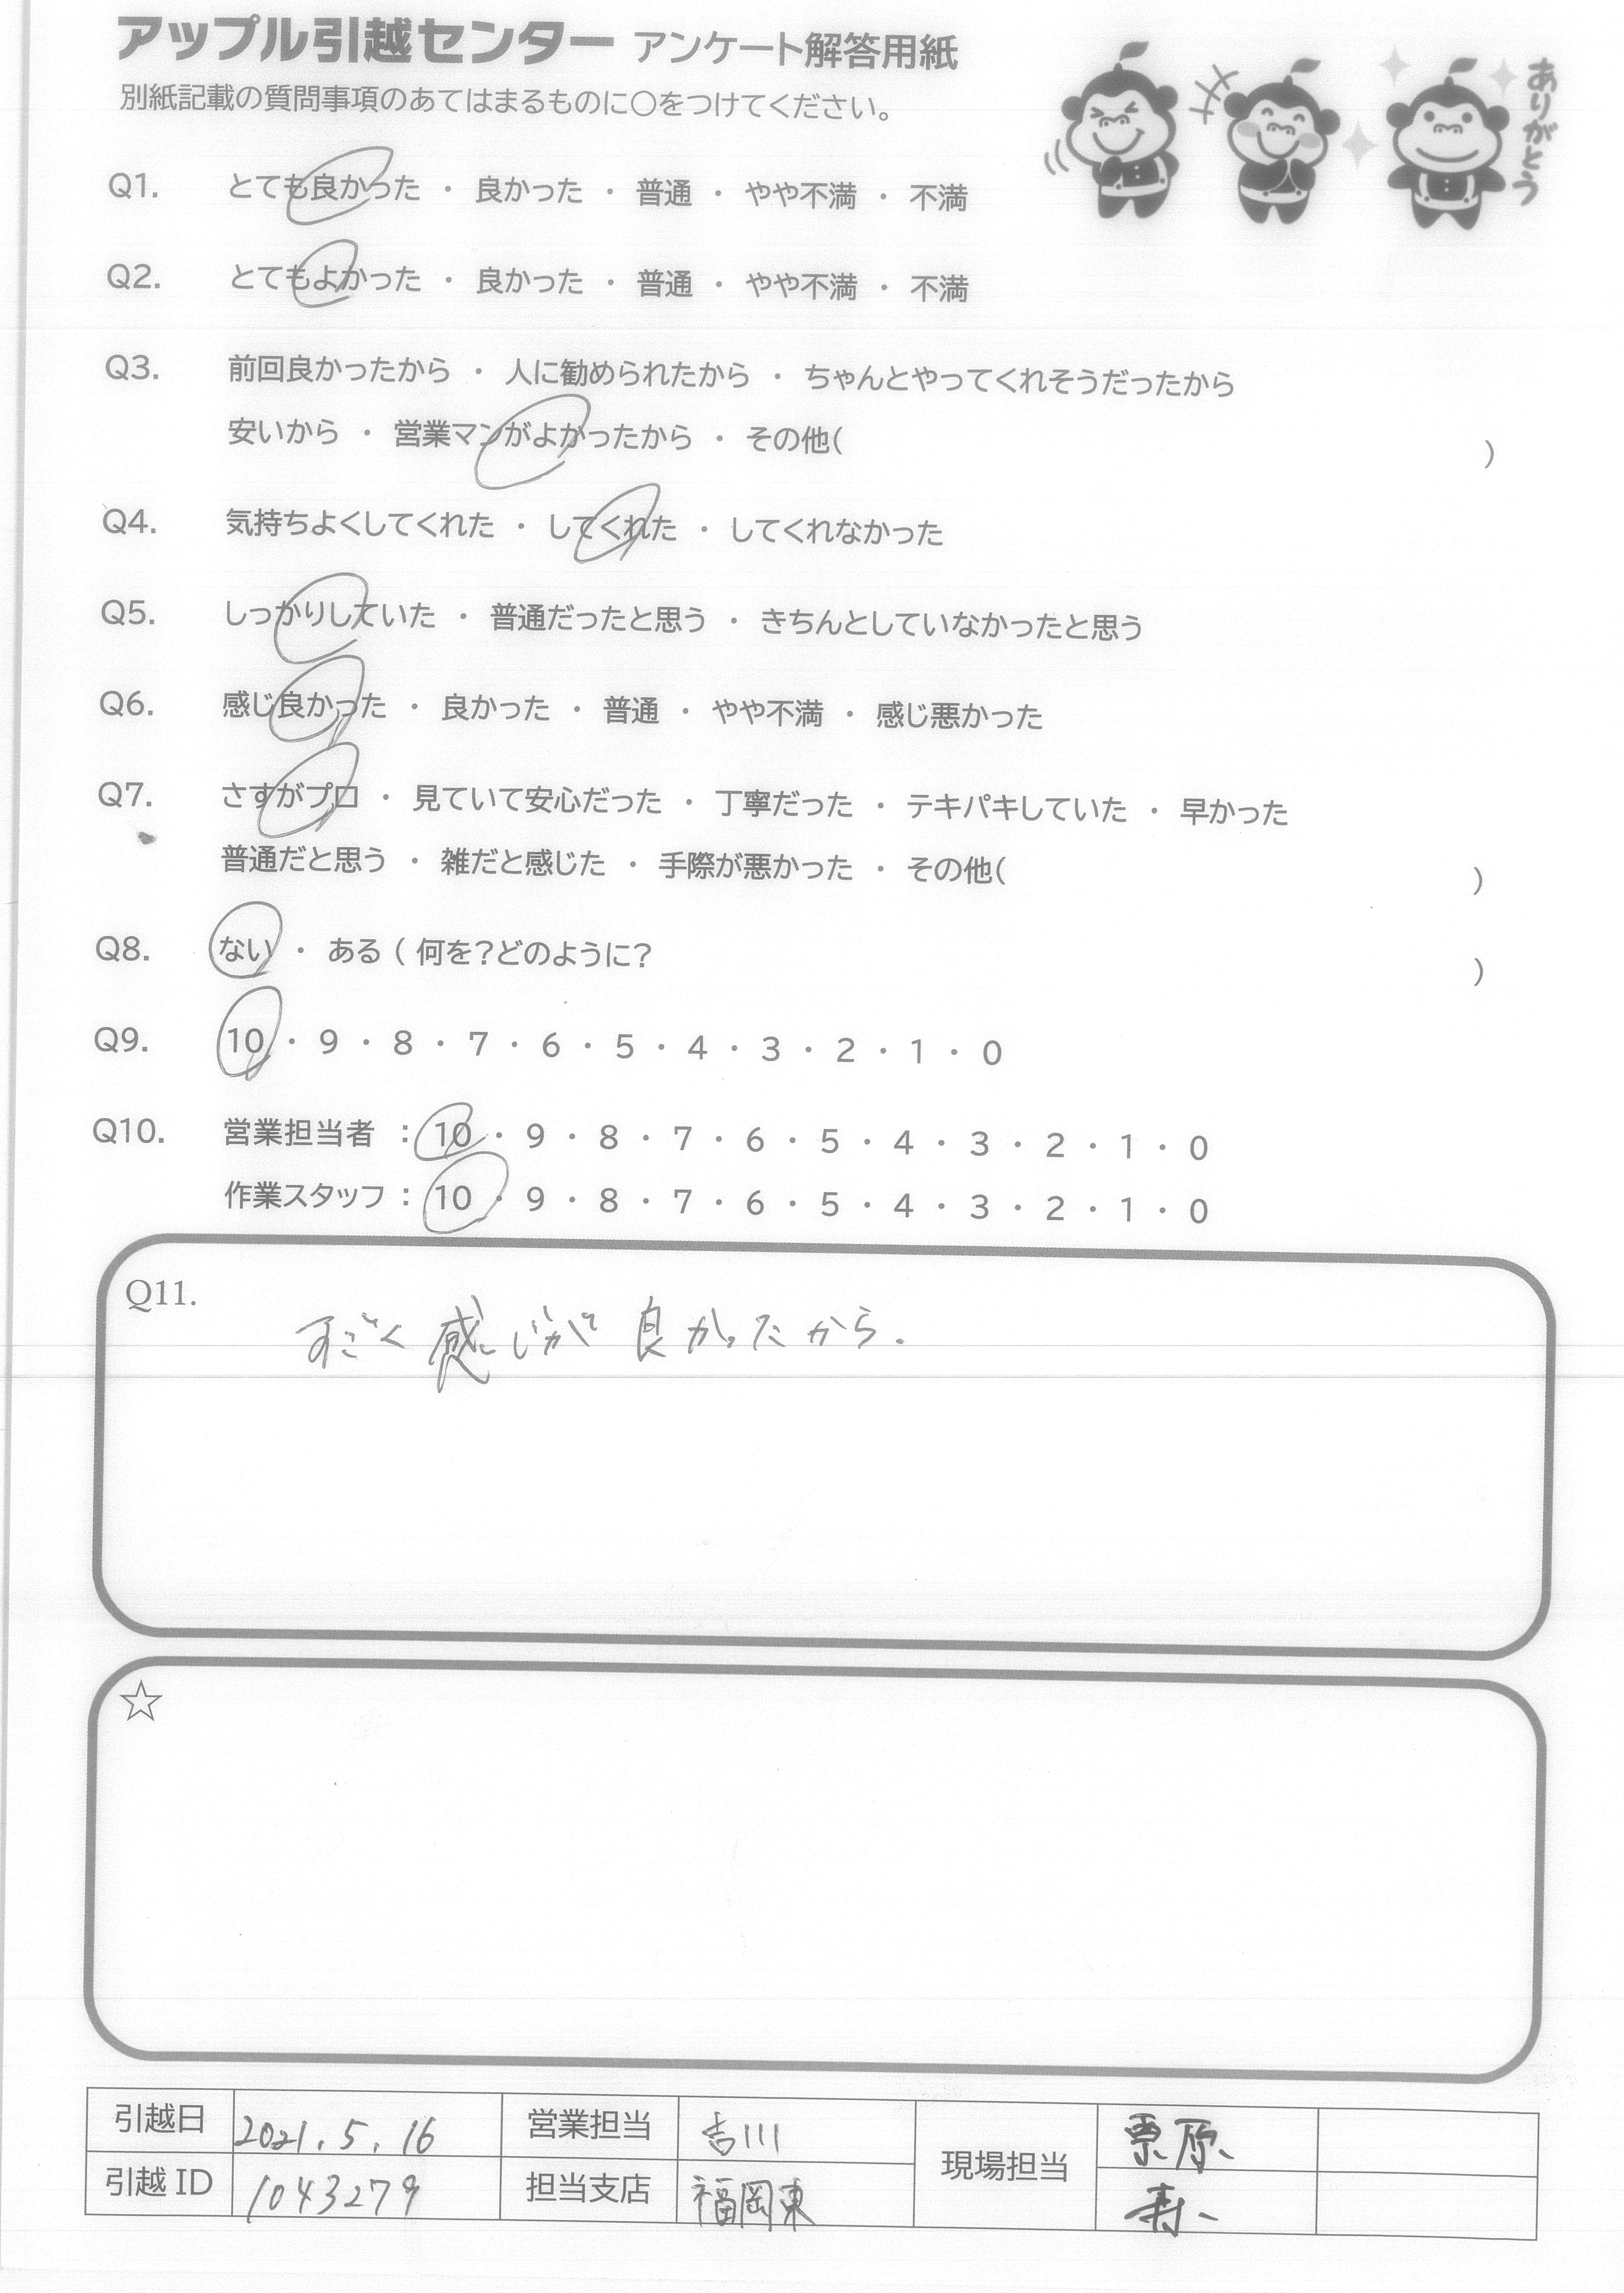 アップル引越センター アンケート解答用紙
別紙記載の質問事項のあてはまるものに〇をつけてください。
ありがとう
Q1. とても良かった ・ 良かった ・ 普通 ・ やや不満 ・ 不満
Q2. とてもよかった ・ 良かった ・ 普通 ・ やや不満 ・ 不満
Q3. 前回良かったから ・ 人に勧められたから ・ ちゃんとやってくれそうだったから
安いから ・ 営業マンがよかったから ・ その他( )
Q4. 気持ちよくしてくれた ・ してくれた ・ してくれなかった
Q5. しっかりしていた ・ 普通だったと思う ・ きちんとしていなかったと思う
Q6. 感じ良かった ・ 良かった ・ 普通 ・ やや不満 ・ 感じ悪かった
Q7. さすがプロ ・ 見ていて安心だった ・ 丁寧だった ・ テキパキしていた ・ 早かった
普通だと思う ・ 雑だと感じた ・ 手際が悪かった ・ その他( )
Q8. ない ・ ある ( 何を?どのように? )
Q9. 10 ・ 9 ・ 8 ・ 7 ・ 6 ・ 5 ・ 4 ・ 3 ・ 2 ・ 1 ・ 0
Q10. 営業担当者 : 10 ・ 9 ・ 8 ・ 7 ・ 6 ・ 5 ・ 4 ・ 3 ・ 2 ・ 1 ・ 0
作業スタッフ : 10 ・ 9 ・ 8 ・ 7 ・ 6 ・ 5 ・ 4 ・ 3 ・ 2 ・ 1 ・ 0
Q11.
すごく感じが良かったから.
☆
引越日 2021.5.16 営業担当 吉川 現場担当 栗原
引越ID 1043279 担当支店 福岡東